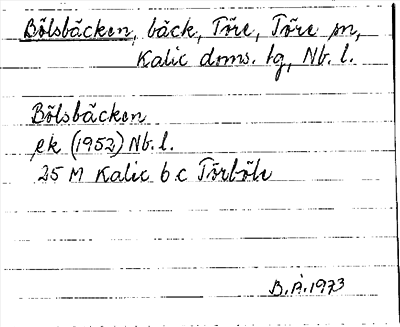 Bölsbäcken, bäck, Töre, Töre sn,
Kalix doms. lg, Nb. l.
Bölsbäcken
ek (1952) Nb. l.
25 M Kalix 6 c Törböle
B.Å. 1973